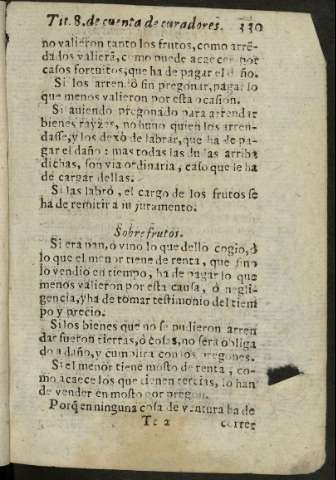 Tit. 8. de cuenta de curadores. 330
no valieron tanto los frutos, como arrē-
dados valierā, como puede acaecer por
casos fortuitos, que ha de pagar el daño.
Si los arrendó sin pregonar, pagar lo
que menos valieron por esta ocasion.
Si auiendo pregonado para arrendar
bienes rayzes, no huuo quien los arren-
dasse, y los dexò de labrar, que ha de pa-
gar el daño: mas todas las dudas arriba
dichas, son via ordinaria, caso que le ha
de cargar dellas.
Si las labró, el cargo de los frutos se
ha de remitir a su juramento.
Sobre frutos.
Si era pan, ò vino lo que dello cogio, ò
lo que el menor tiene de renta, que sino
lo vendiò en tiempo, ha de pagar lo que
menos valieron por esta causa, ò negli-
gencia, y ha de tomar testimonio del tiem
po y precio.
Si los bienes que no se pudieron arren
dar fueron tierras, ò casas, no será obliga
do a daño, y cumplira con los pregones.
Si el menor tiene mosto de renta, co-
mo acaece los que tienen tercias, lo han
de vender en mosto por pregon.
Porq̃ en ninguna cosa de ventura ha de
Tt 2 correr